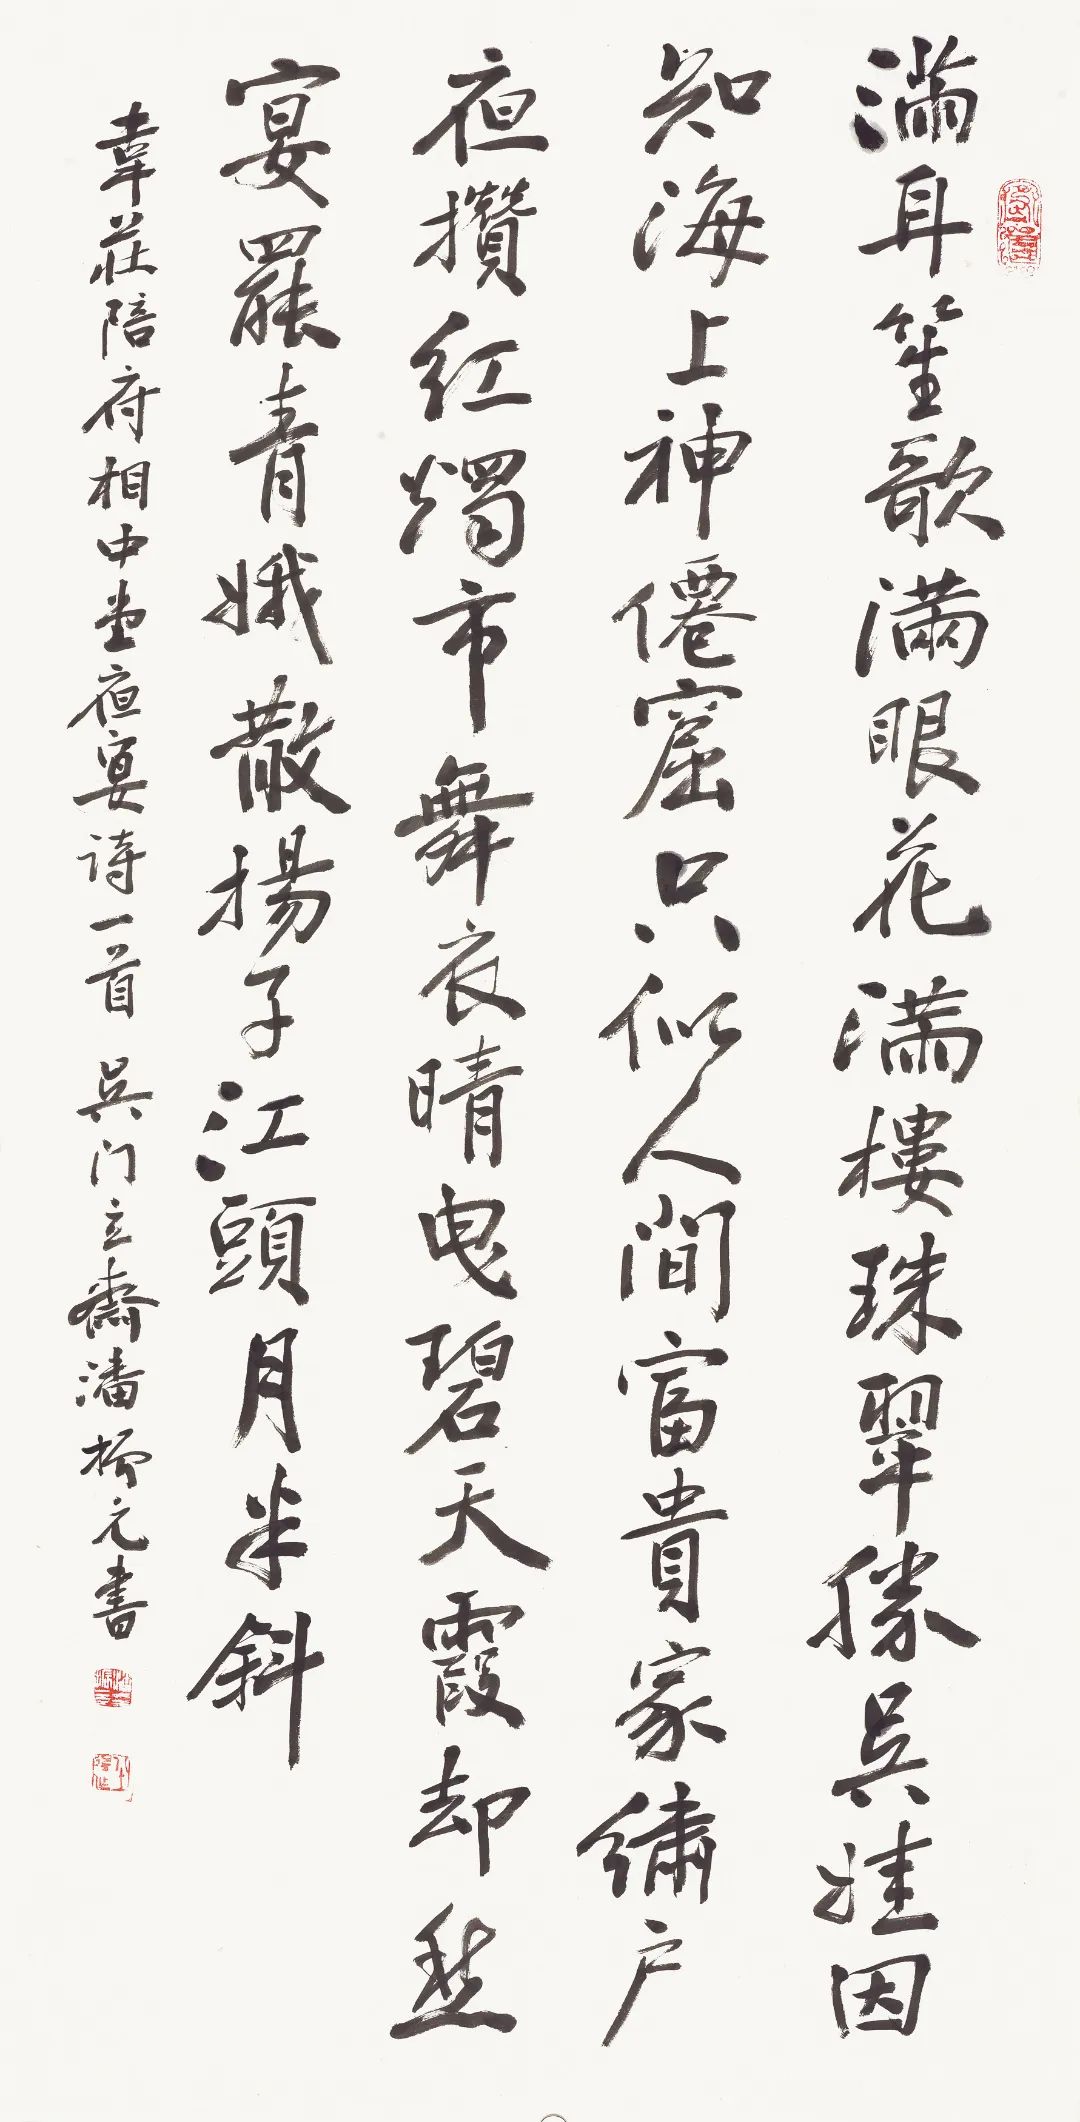 滿耳笙歌滿眼花滿樓珠翠勝吳娃因
知海上神僊窟只似人間富貴家繡户
夜攢红燭市舞衣晴曳碧天霞却愁
宴罷青娥散揚子江頭月半斜
韋莊陪府相中堂夜宴诗一首 吳门立齋潘振元書